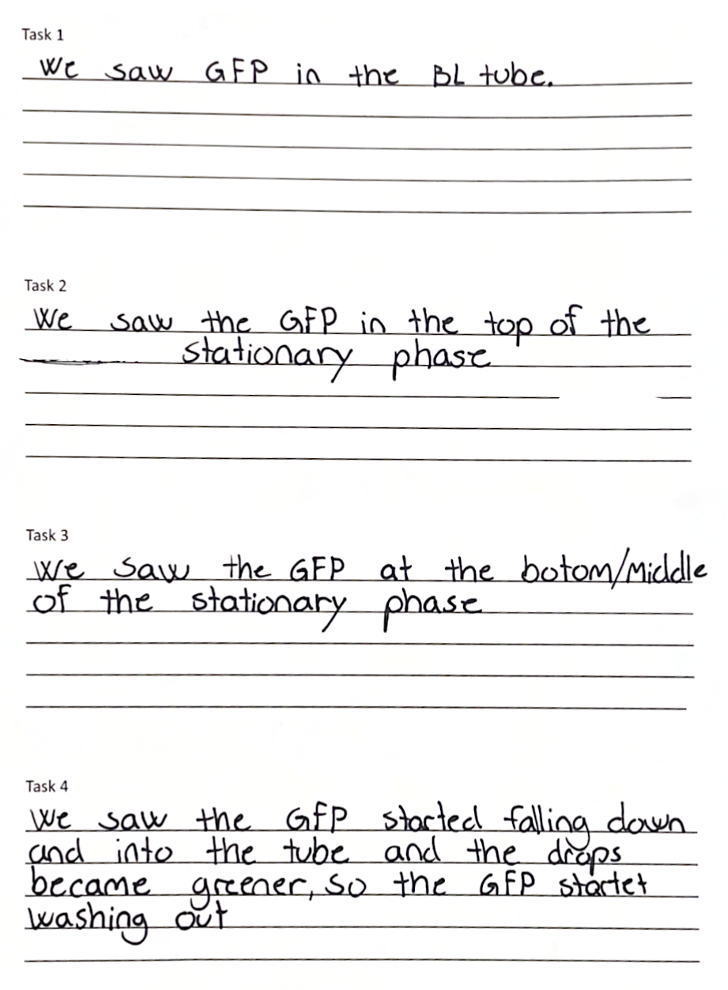 Task 1
We saw GFP in the BL tube.
Task 2
We saw the GFP in the top of the
stationary phase
Task 3
We saw the GFP at the botom/Middle
of the stationary phase
Task 4
We saw the GFP started falling down
and into the tube and the drops
became greener, so the GFP startet
washing out